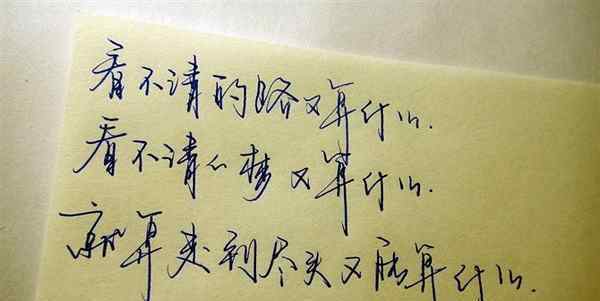 看不清的路又算什么.
看不清的梦又算什么.
就算走到尽头又能算什么.